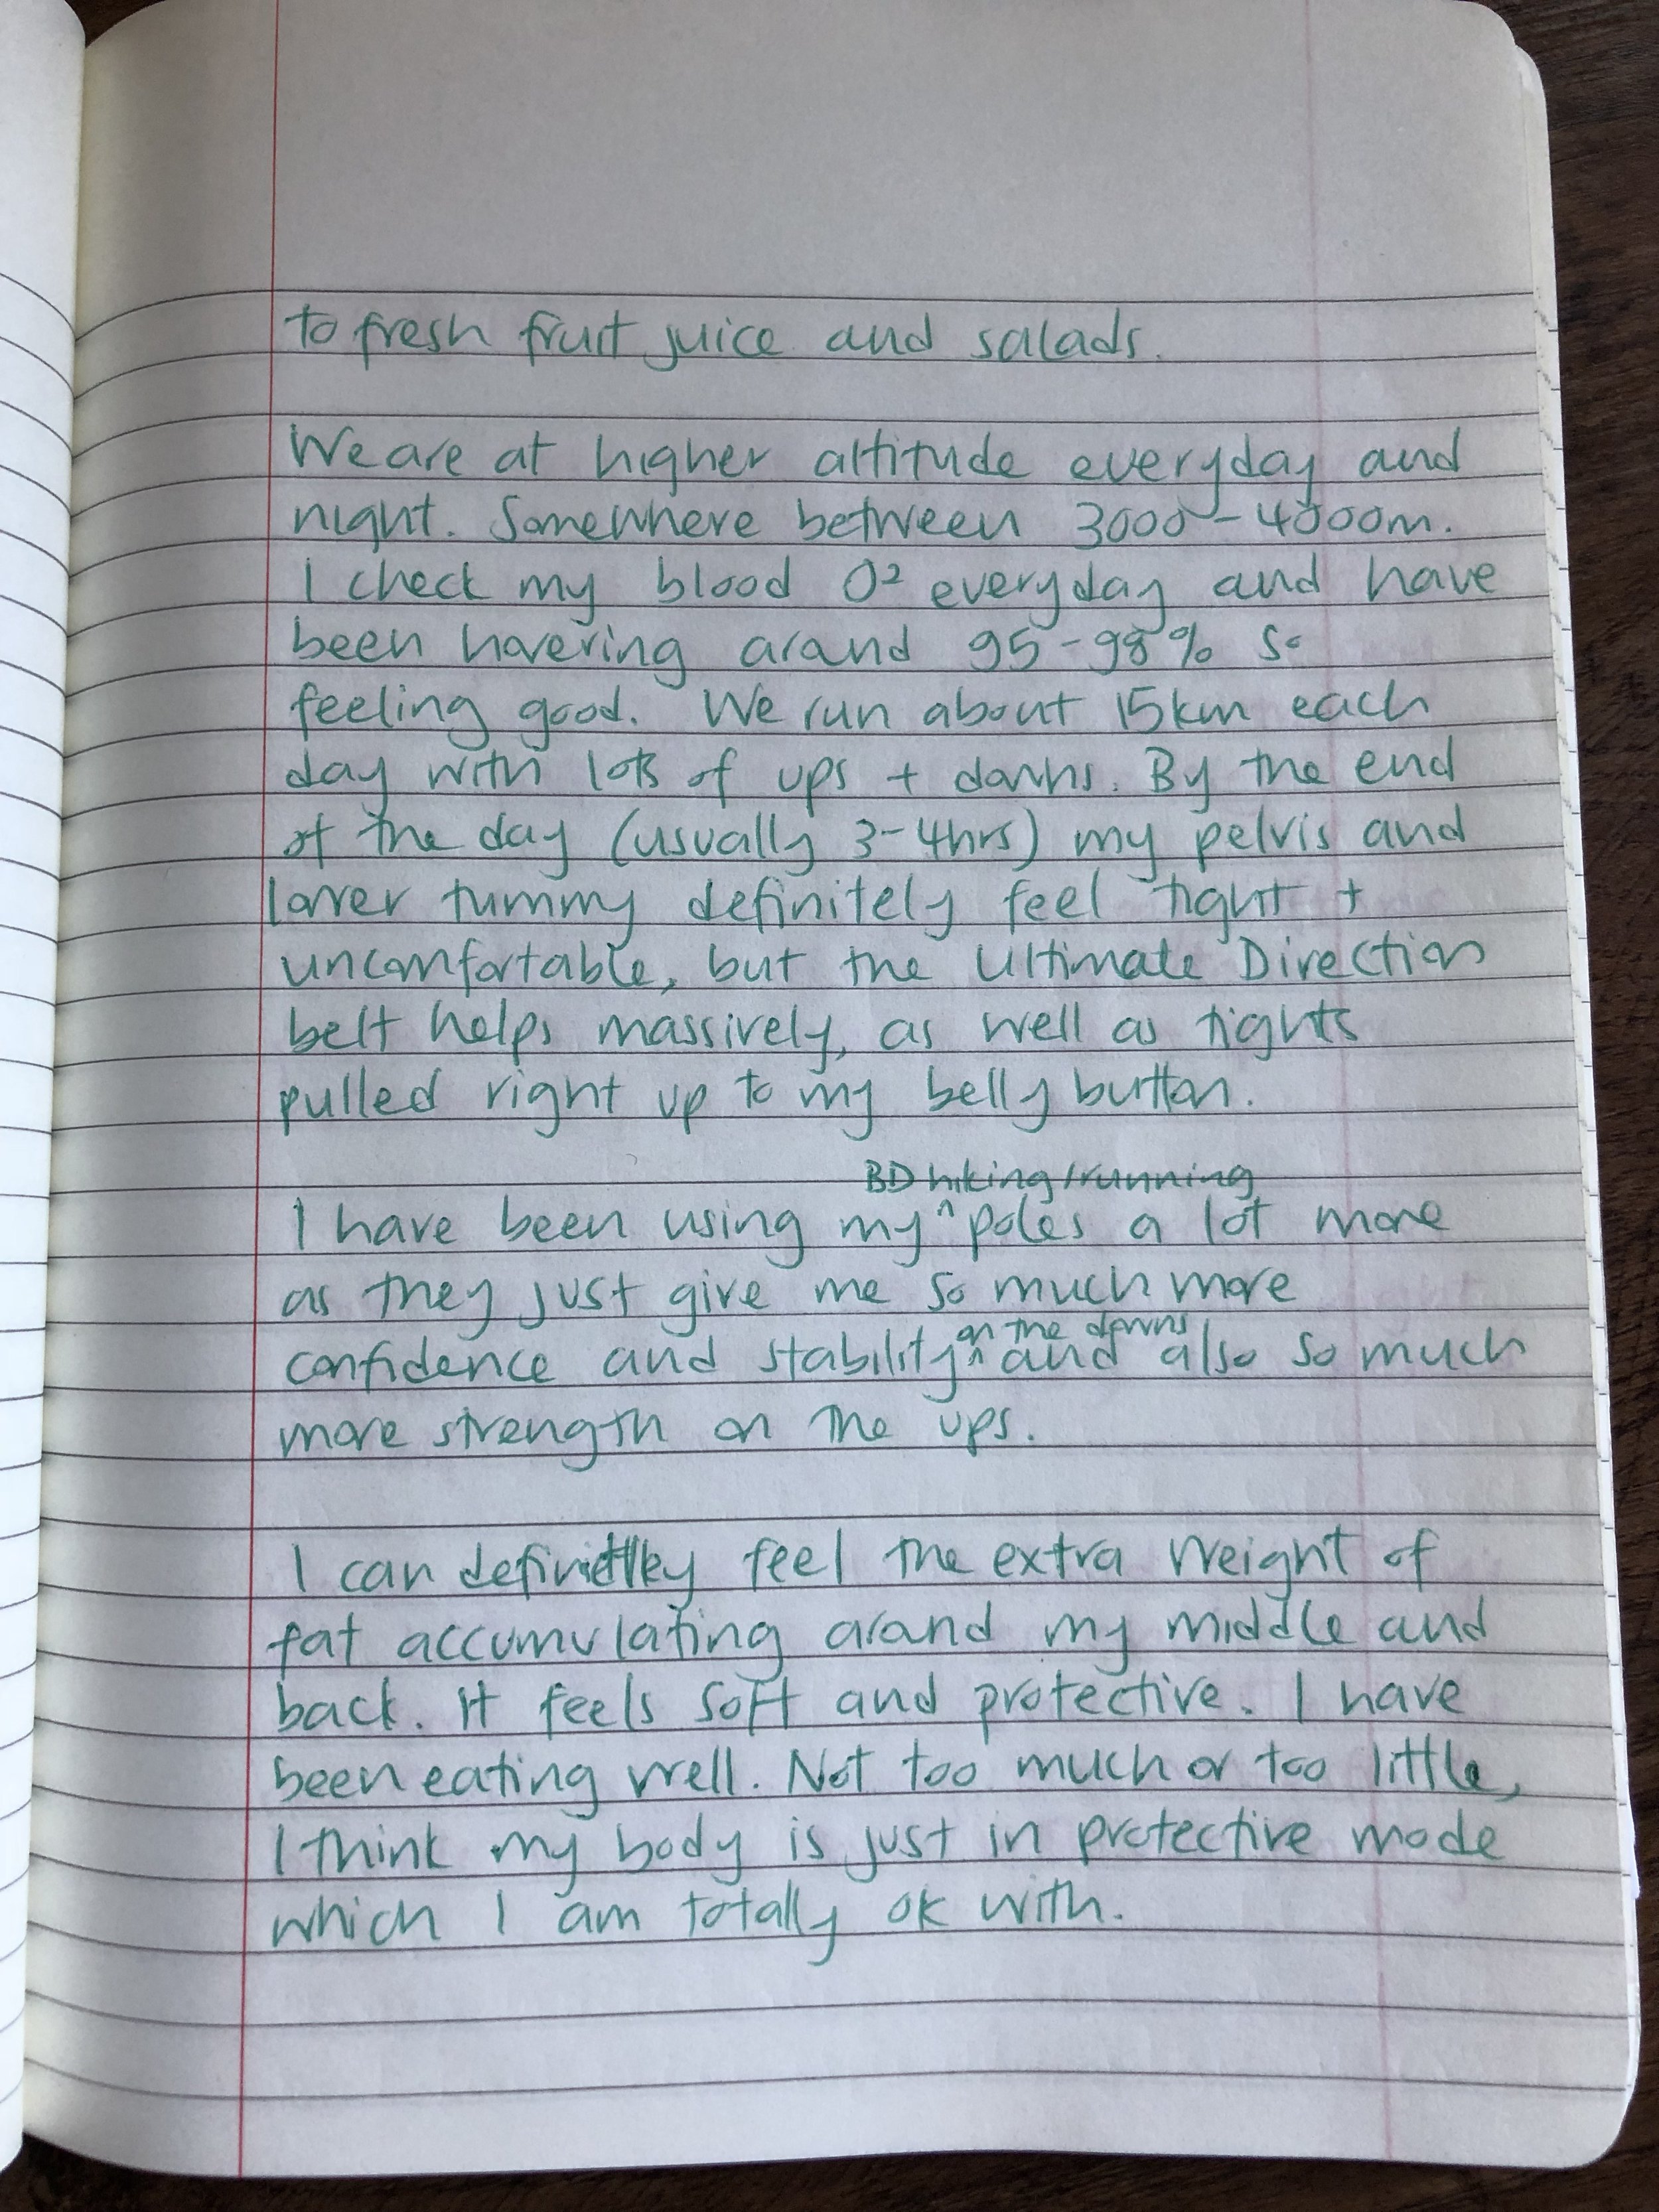 to fresh fruit juice and salads.
We are at higher altitude everyday and
night. Somewhere between 3000-4000m.
I check my blood O² everyday and have
been hovering around 95-98% so
feeling good. We run about 15km each
day with lots of ups + downs. By the end
of the day (usually 3-4hrs) my pelvis and
lower tummy definitely feel tight +
uncomfortable, but the Ultimate Direction
belt helps massively, as well as tights
pulled right up to my belly button.
BD hiking/running
I have been using my ^ poles a lot more
as they just give me so much more
on the downs
confidence and stability ^ and also so much
more strength on the ups.
I can definitely feel the extra weight of
fat accumulating around my middle and
back. It feels soft and protective. I have
been eating well. Not too much or too little,
I think my body is just in protective mode
which I am totally ok with.